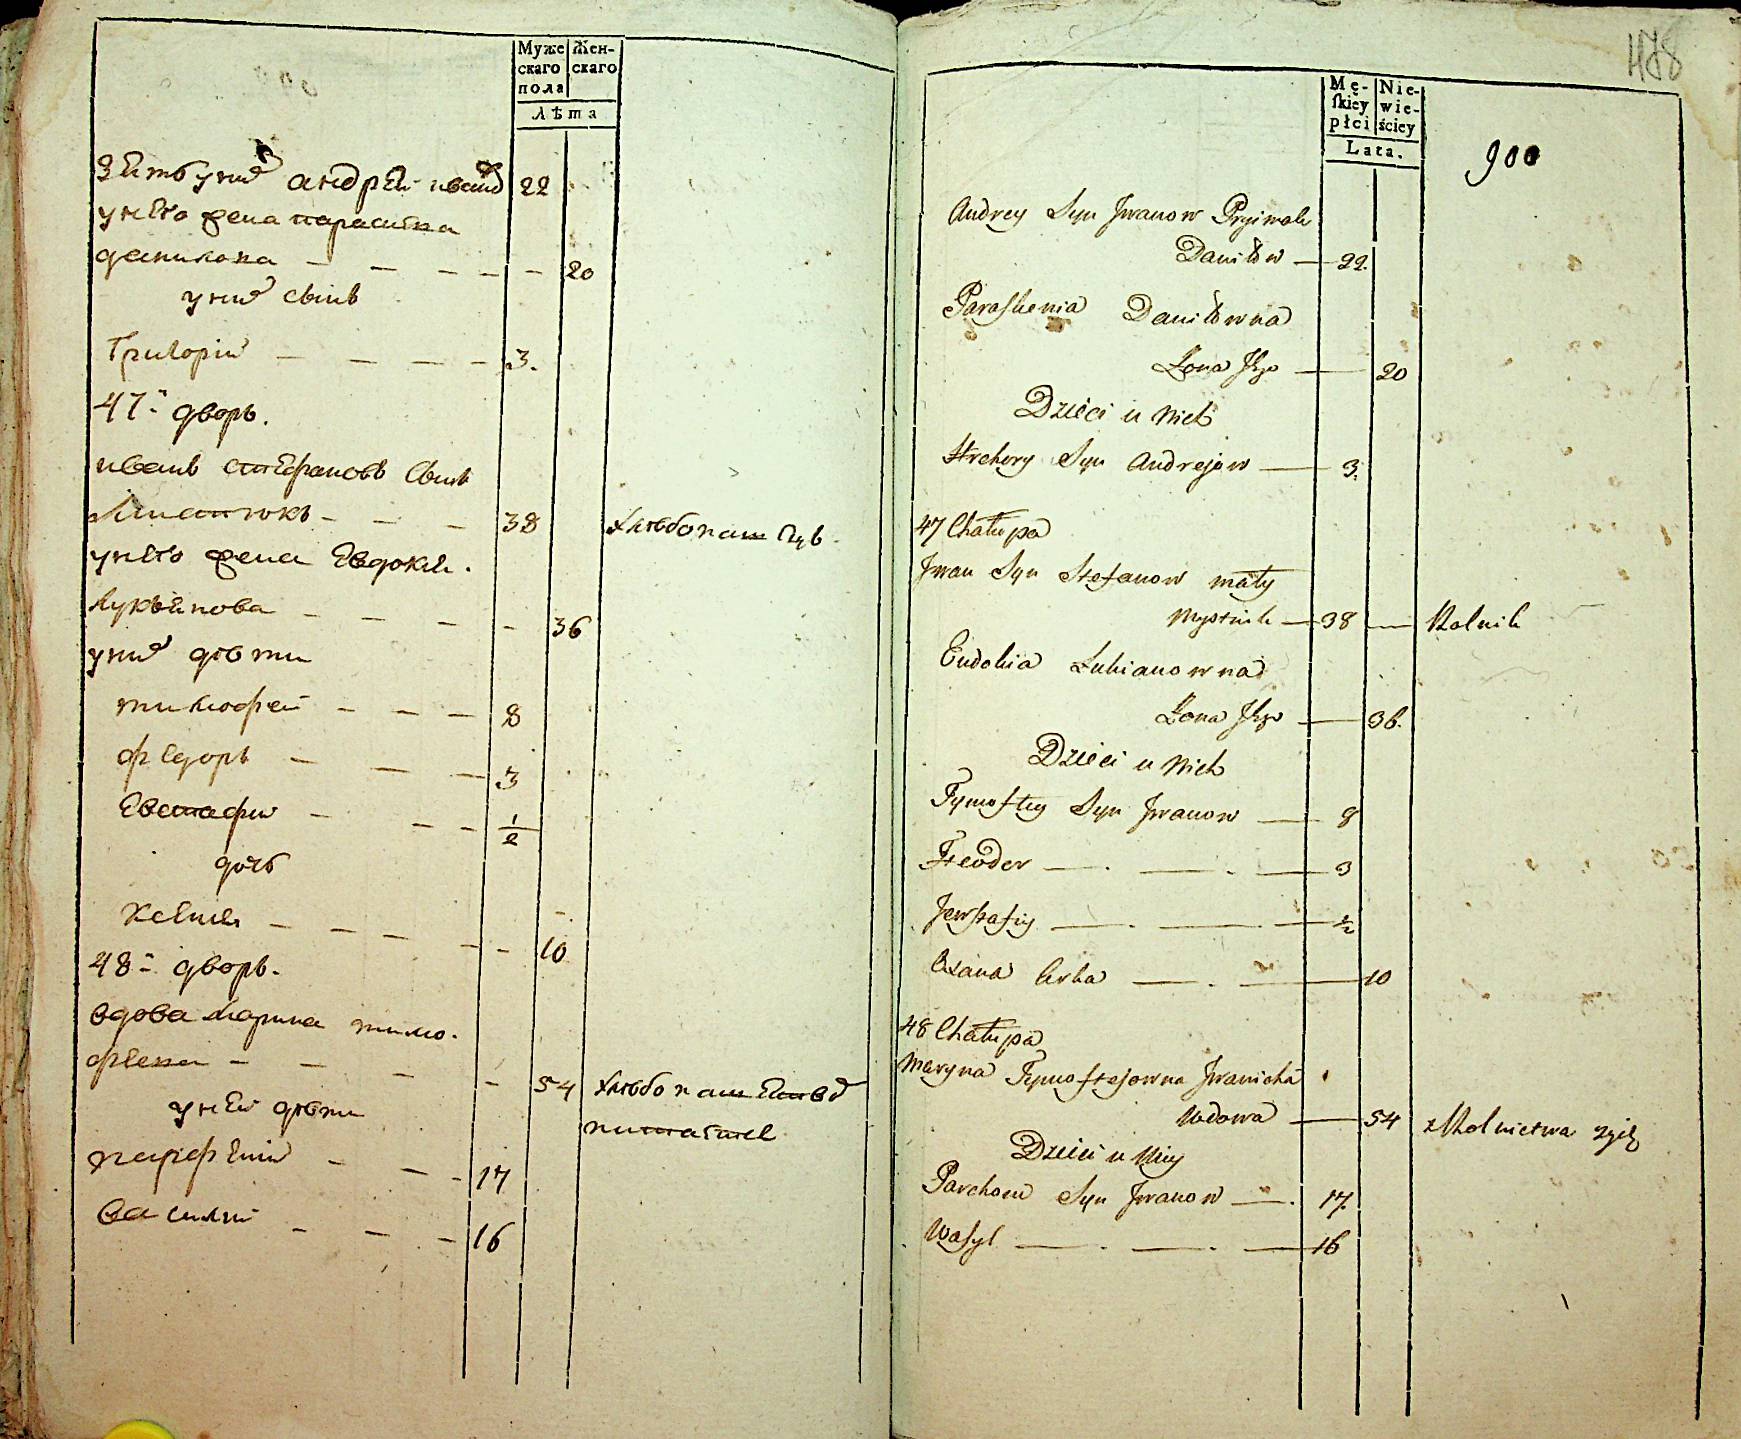 Муже
скаго
пола
Жен-
скаго
Лѣта
Зять у них Андрей Иванов 22
у него жена Параскева
Данилова 20
у них сынъ
Григорий 3.
47-й дворъ.
Иванъ Стефановъ сынъ
38 хлебопашецъ
у него жена Евдокия
Лукьянова 36
у них дѣти
Тимофей 8
Федоръ 3
Евстафий 1/2
дочь
Ксения 10
48-й дворъ.
вдова Марина Тимо-
феева 54 хлѣбопашеством
питается
у ней дѣти
Парфений 17
Василий 16
478
Mę-
skiey
płci
Nie-
wie-
ściey
Lata.
900
Andrey Syn Jwanow Pryimak
Daniłow 22.
Paraskewia Daniłowna
Żona Jego 20
Dzieci u Nich
Hrehory Syn Andrejow 3.
47 Chałupa
Jwan Syn Stefanow mały
38 Rolnik
Eudokia Łukianowna
Żona Jego 36.
Dzieci u Nich
Tymoftey Syn Jwanow 8
Fteodor 3
Jewstafiy 1/2
Oxana Corka 10
48 Chałupa
Maryna Tymoftejowna Jwanicha
Wdowa 54 z Rolnictwa żyie
Dzieci u Niey
Parchom Syn Jwanow 17.
Wasyl 16